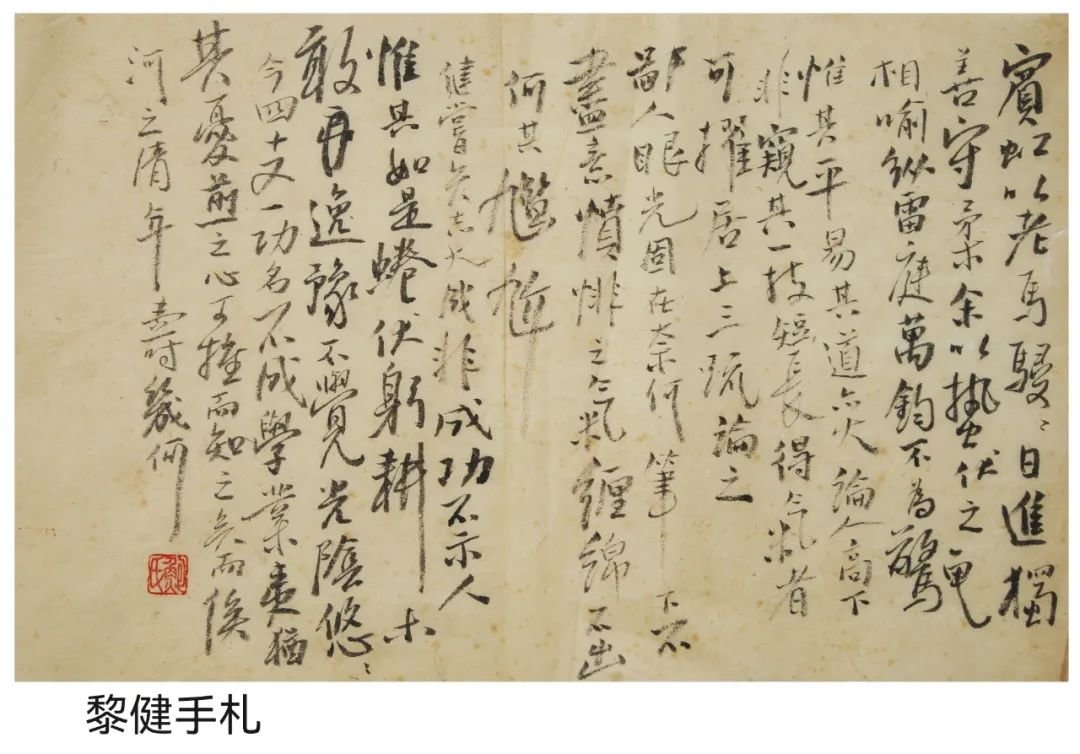 賓虹以老馬駸〻日進獨
善守柔余以蟄伏之黽
相喻纵雷庭萬鈞不為驚
惟其平易其道亦灾論人高下
非窺其一技短長得气者
可擢居上三
論之
鄙人眼光固在奈何筆下不
盡意憤悱之气纏綿不出
何其尷尬
健嘗矣志大成非成功不示人
惟其如是蜷伏躬耕
敢再逸豫不覺光陰悠〻
今四十又一功名不成學業
猶
其憂煎之心可
而知之矣而俟
河之清年壽幾何
黎健手札